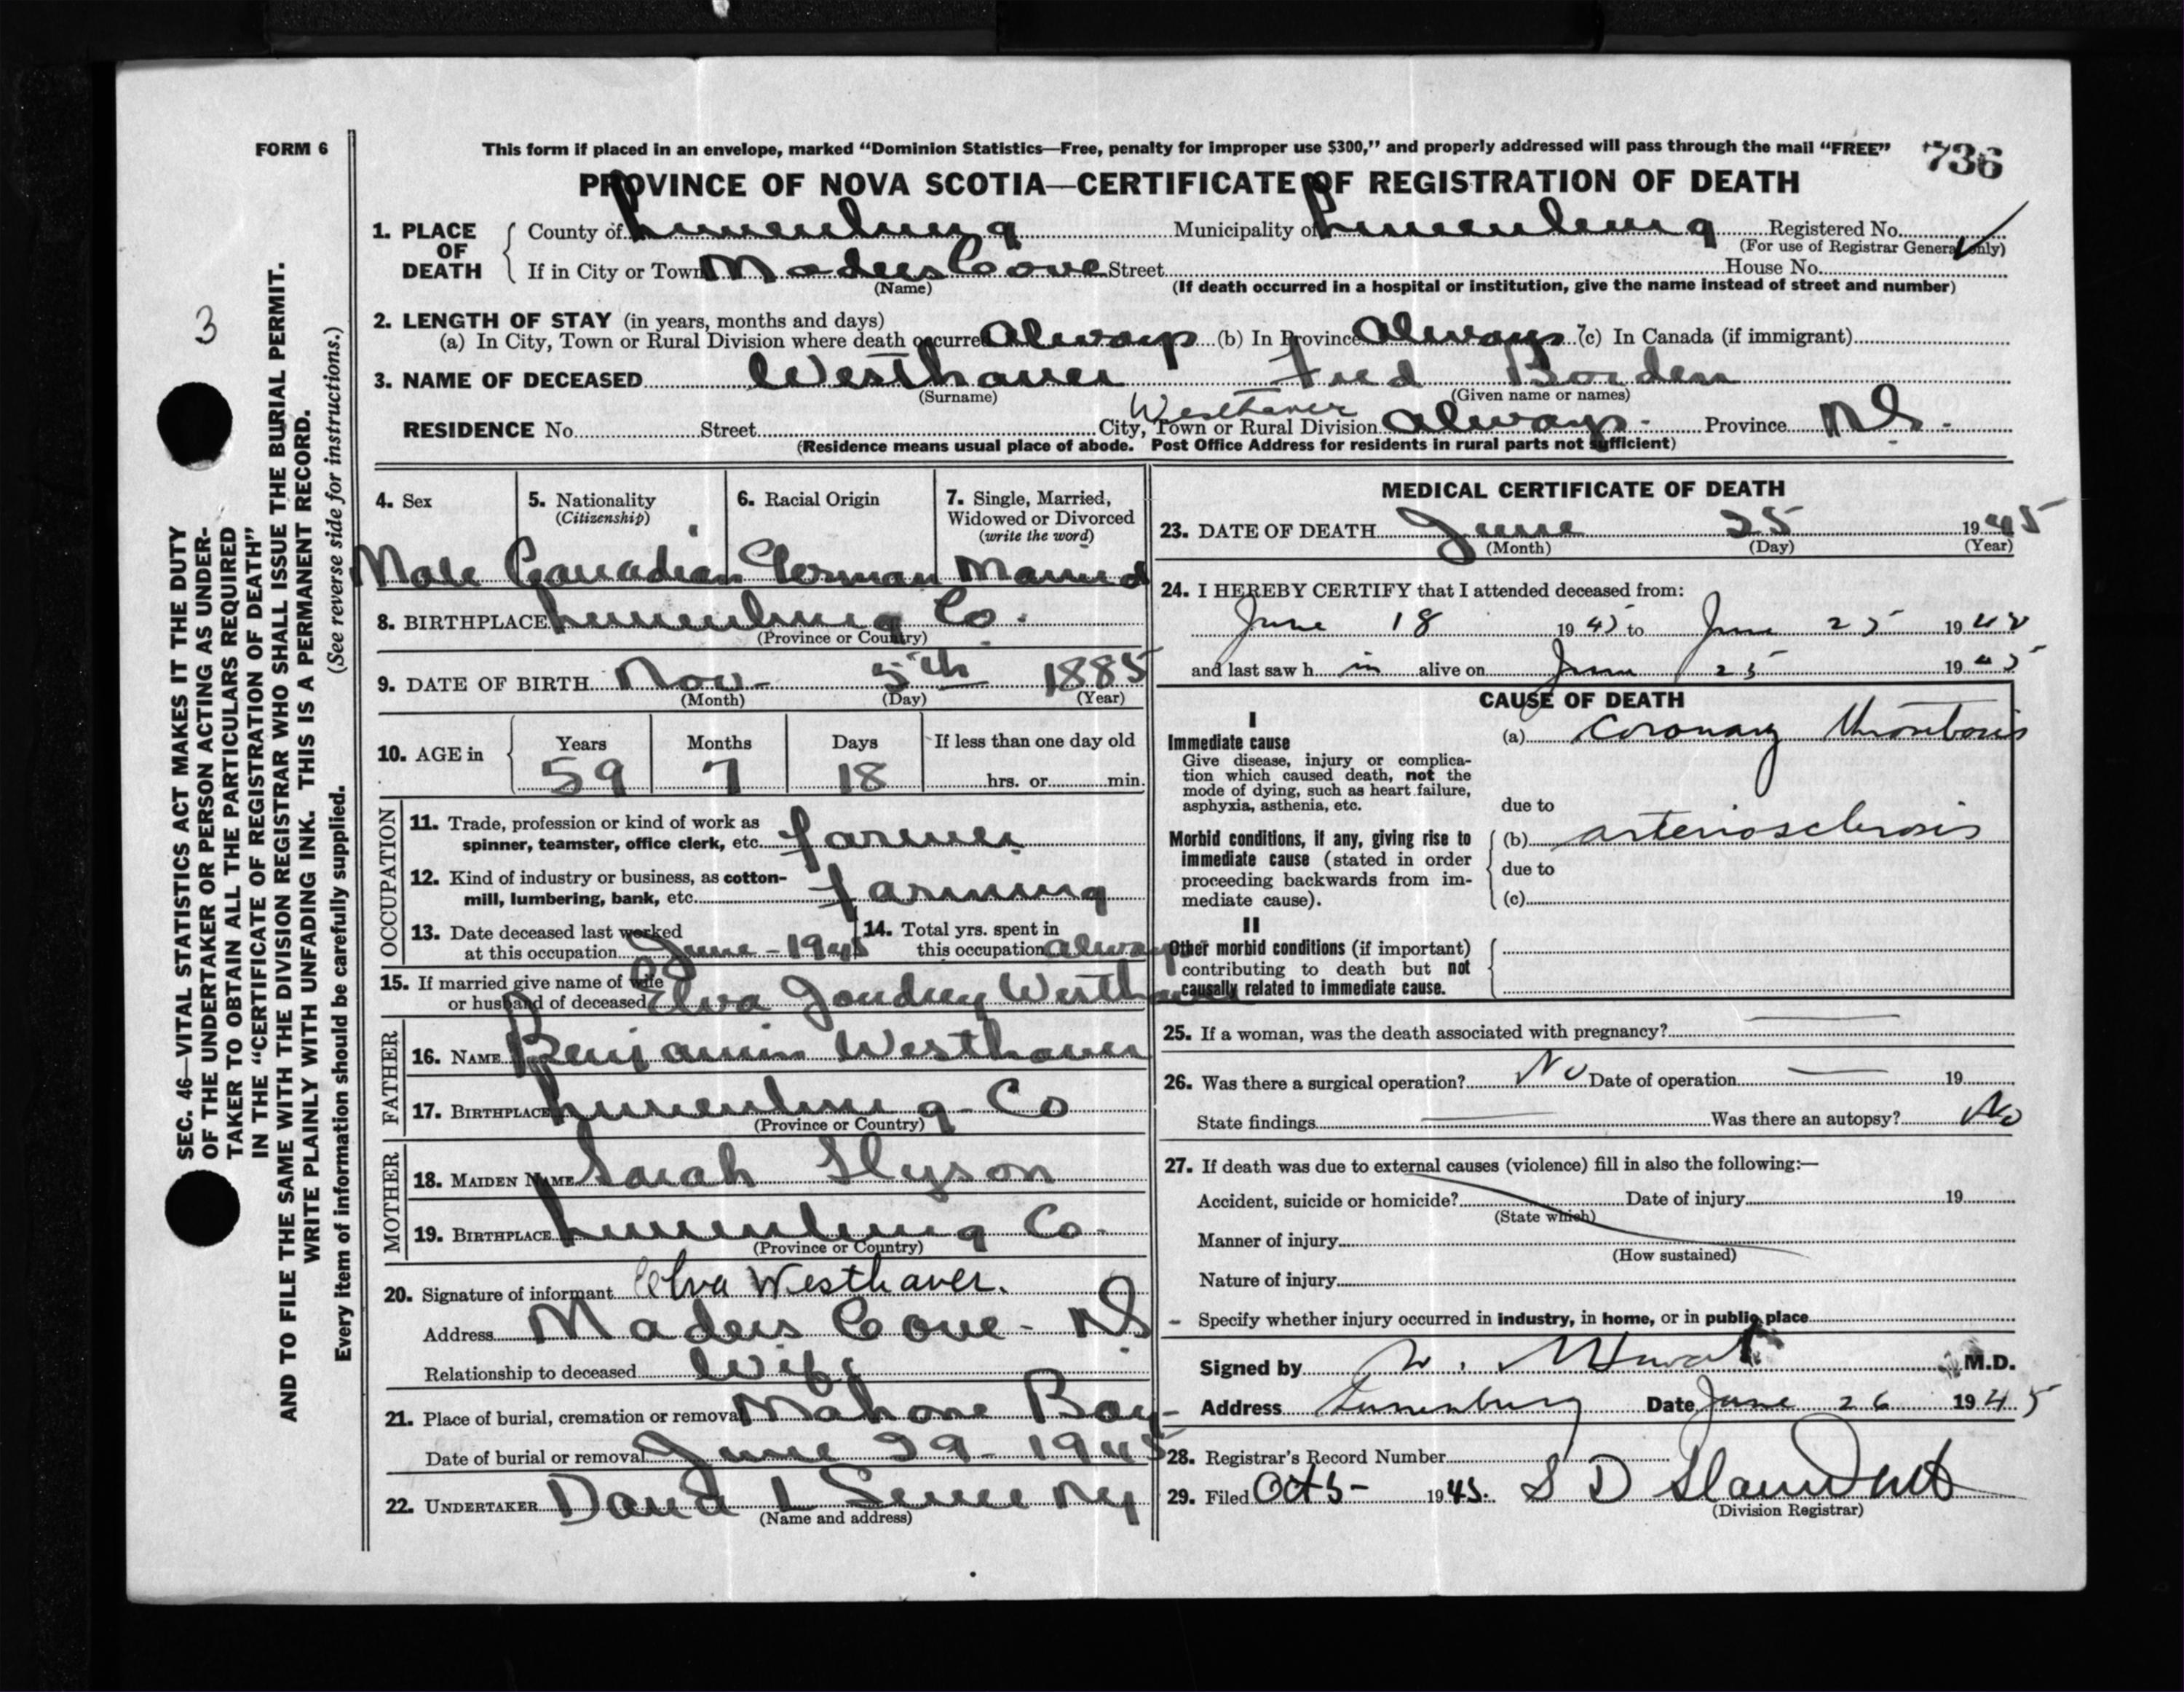 FORM 6
This form if placed in an envelope, marked “Dominion Statistics—Free, penalty for improper use $300,” and properly addressed will pass through the mail “FREE”
736
PROVINCE OF NOVA SCOTIA—CERTIFICATE OF REGISTRATION OF DEATH
1. PLACE OF DEATH
County of Lunenburg Municipality of Lunenburg Registered No.
(For use of Registrar General only)
If in City or Town Maders Cove Street House No.
(Name)
(If death occurred in a hospital or institution, give the name instead of street and number)
2. LENGTH OF STAY (in years, months and days)
(a) In City, Town or Rural Division where death occurred always (b) In Province always (c) In Canada (if immigrant)
3. NAME OF DECEASED Westhaver Fred Borden
(Surname) (Given name or names)
Westhaver
RESIDENCE No. Street City, Town or Rural Division always. Province N S.
(Residence means usual place of abode. Post Office Address for residents in rural parts not sufficient)
4. Sex
5. Nationality (Citizenship)
6. Racial Origin
7. Single, Married, Widowed or Divorced (write the word)
Male Canadian German Married
8. BIRTHPLACE Lunenburg Co.
(Province or Country)
9. DATE OF BIRTH Nov- 5th 1885
(Month) (Day) (Year)
10. AGE in Years Months Days If less than one day old
59 7 18 hrs. or min.
OCCUPATION
11. Trade, profession or kind of work as spinner, teamster, office clerk, etc. farmer
12. Kind of industry or business, as cotton-mill, lumbering, bank, etc. farming
13. Date deceased last worked at this occupation June-1945
14. Total yrs. spent in this occupation always
15. If married give name of wife or husband of deceased Elva Joudrey Westhaver
FATHER
16. NAME Benjamin Westhaver
17. BIRTHPLACE Lunenburg-Co
(Province or Country)
MOTHER
18. MAIDEN NAME Sarah Slyson
19. BIRTHPLACE Lunenburg Co-
(Province or Country)
20. Signature of informant Elva Westhaver.
Address Maders Cove- N S
Relationship to deceased Wife
21. Place of burial, cremation or removal Mahone Bay-
Date of burial or removal June 29-1945
22. UNDERTAKER David L
(Name and address)
MEDICAL CERTIFICATE OF DEATH
23. DATE OF DEATH June 25 1945
(Month) (Day) (Year)
24. I HEREBY CERTIFY that I attended deceased from:
June 18 1945 to June 25 19
and last saw h im alive on June 25 1945
CAUSE OF DEATH
I
Immediate cause
Give disease, injury or complica-
tion which caused death, not the
mode of dying, such as heart failure,
asphyxia, asthenia, etc.
(a) coronary thrombosis
due to
Morbid conditions, if any, giving rise to
immediate cause (stated in order
proceeding backwards from im-
mediate cause).
(b) arteriosclerosis
due to
(c)
II
Other morbid conditions (if important)
contributing to death but not
causally related to immediate cause.
25. If a woman, was the death associated with pregnancy?
26. Was there a surgical operation? No Date of operation 19
State findings Was there an autopsy? No
27. If death was due to external causes (violence) fill in also the following:—
Accident, suicide or homicide? Date of injury 19
(State which)
Manner of injury
(How sustained)
Nature of injury
Specify whether injury occurred in industry, in home, or in public place
Signed by M.D.
Address Lunenburg Date June 26 1945
28. Registrar's Record Number
29. Filed Oct 5- 1945. S D
(Division Registrar)
3
SEC. 46—VITAL STATISTICS ACT MAKES IT THE DUTY
OF THE UNDERTAKER OR PERSON ACTING AS UNDER-
TAKER TO OBTAIN ALL THE PARTICULARS REQUIRED
IN THE “CERTIFICATE OF REGISTRATION OF DEATH”
AND TO FILE THE SAME WITH THE DIVISION REGISTRAR WHO SHALL ISSUE THE BURIAL PERMIT.
WRITE PLAINLY WITH UNFADING INK. THIS IS A PERMANENT RECORD.
Every item of information should be carefully supplied. (See reverse side for instructions.)